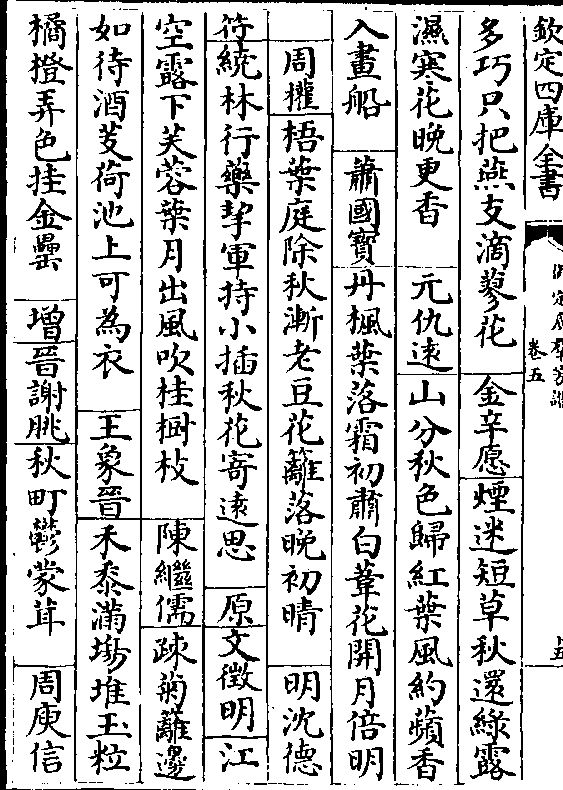 欽定四庫全書
卷五
多巧只把燕支滴蓼花　金辛愿煙迷短草秋還緑露
濕寒花晚更香　元仇遠山分秋色歸紅葉風約蘋香
入畫船　蕭國寶丹楓葉落霜初肅白葦花開月倍明
周權梧葉庭除秋漸老豆花籬落晚初晴　明沈德
符繞林行藥挈軍持小插秋花寄遠思　原文徵明江
空露下芙蓉葉月出風吹桂樹枝　陳繼儒疎菊籬邊
如待酒芰荷池上可為衣　王象晉禾黍滿場堆玉粒
橘橙弄色挂金罍　增晉謝朓秋町鬱蒙茸　周庾信